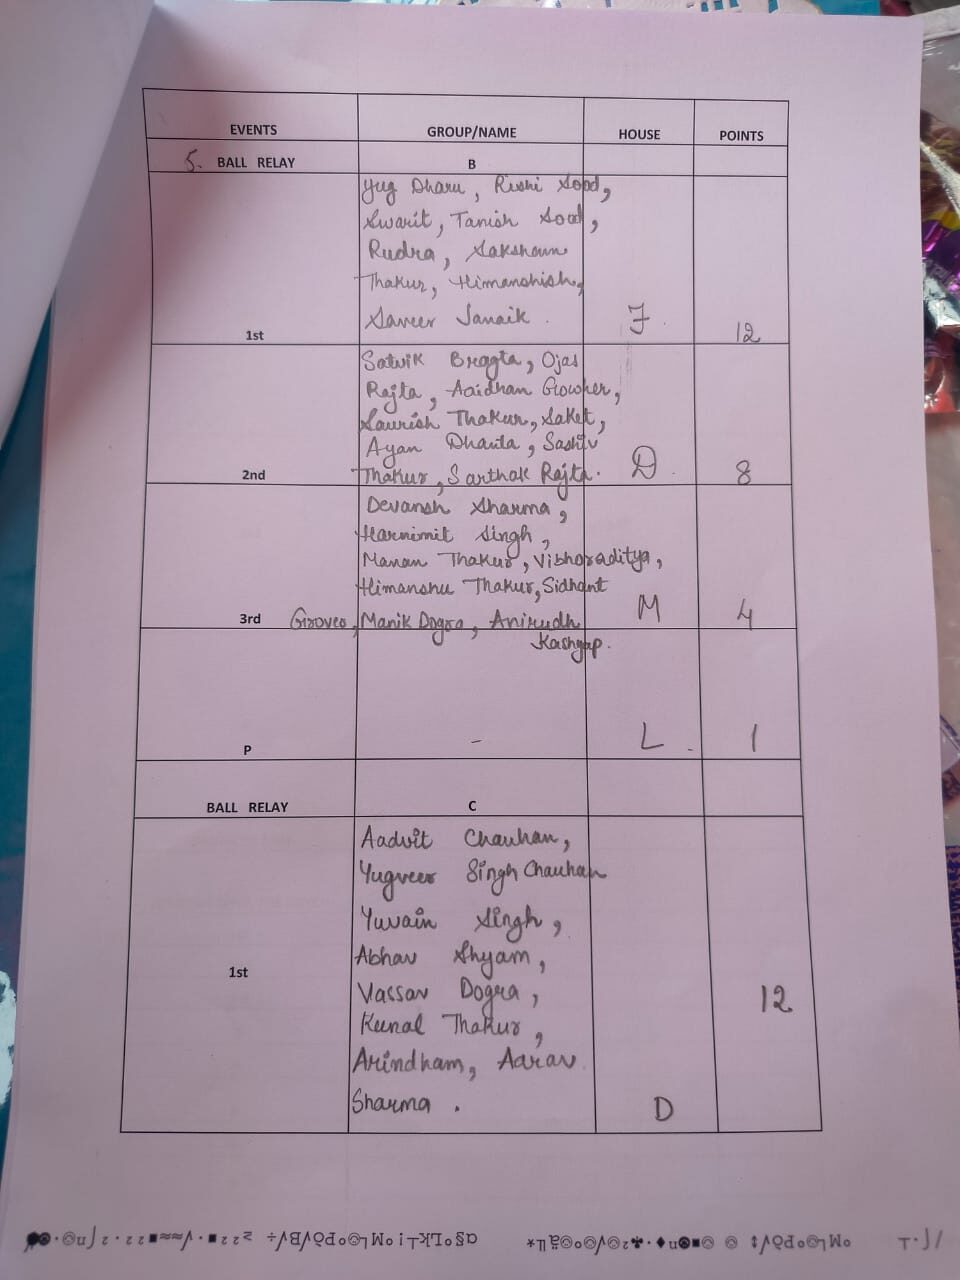 EVENTS GROUP/NAME HOUSE POINTS
5. BALL RELAY B
Yug Dharu, Rishi Sood,
Swarit, Tanish Sood,
Rudra, Saksham
Thakur, Himanshish,
Saveer Janaik.
1st F 12
Satvik Bragta, Ojas
Rajta, Aaidhan Growher,
Saurish Thakur, Saket,
Ayan Dhanta, Sashiv
2nd Thakur, Sarthak Rajta. D 8
Devansh Sharma,
Harnimit Singh,
Manan Thakur, Vibhoraditya,
Himanshu Thakur, Sidhant
3rd Grover, Manik Dogra, Anirudh M 4
Kashyap.
P - L 1
BALL RELAY C
Aadvit Chauhan,
Yugveer Singh Chauhan
Yuvain Singh,
Abhav Shyam,
1st Vassav Dogra, 12
Kunal Thakur,
Arindham, Aarav
Sharma. D